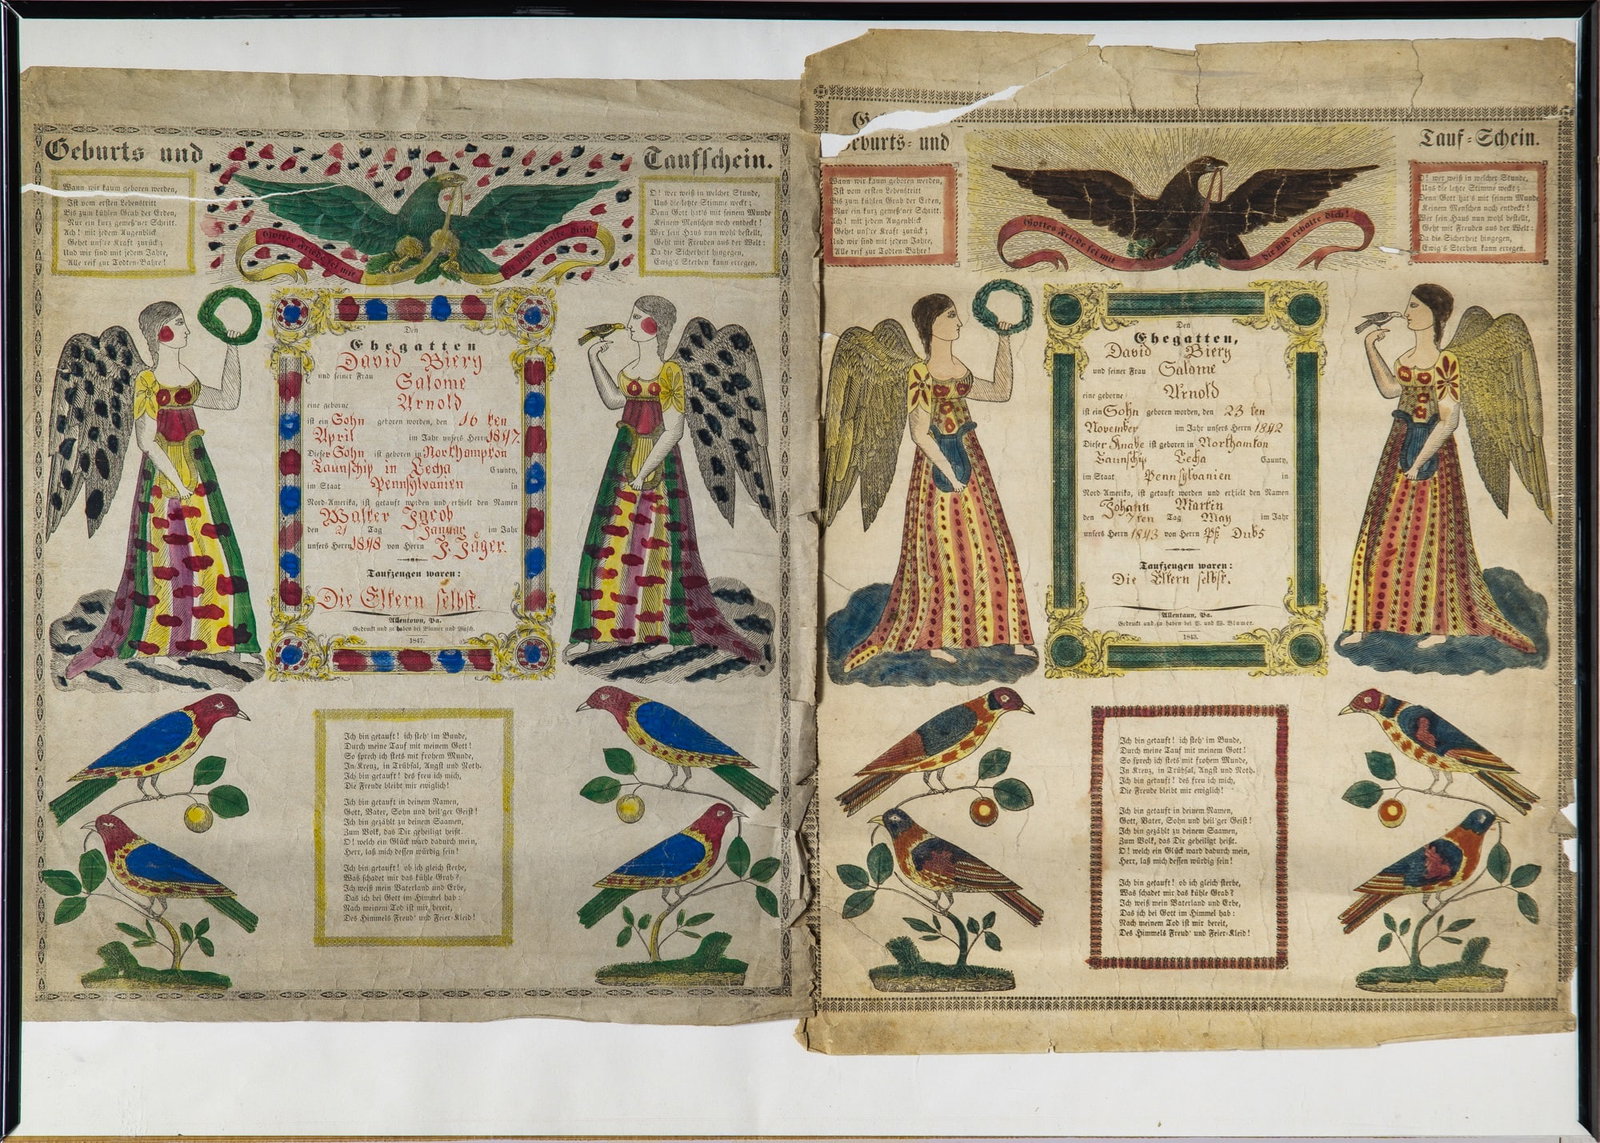 Geburts und
Taufschein.
Wann wir kaum geboren werden,
Ist vom ersten Lebenstritt
Bis zum kühlen Grab der Erden,
Nur ein kurz gemeß'ner Schritt.
Ach! mit jedem Augenblick
Gehet uns're Kraft zurück;
Und wir sind mit jedem Jahre,
Alle reif zur Todten-Bahre!
O! wer weiß in welcher Stunde,
Uns die letzte Stimme weckt;
Denn Gott hat's mit seinem Munde
Keinem Menschen noch entdeckt!
Wer sein Haus nun wohl bestellt,
Geht mit Freuden aus der Welt:
Da die Sicherheit hingegen,
Ewig's Sterben kann erregen.
Gottes Friede sei mit dir und erhalte dich!
Den
Ehegatten
David Biery
und seiner Frau Salome
eine geborne Arnold
ist ein Sohn geboren worden, den 16 ten
April im Jahr unsers Herrn 1847.
Dieser Sohn ist geboren in Northampton
Taunschip in Lecha County,
im Staat Pennsylvanien in
Nord-Amerika, ist getauft worden und erhielt den Namen
Walter Jacob
den 21 Tag Januar im Jahr
unsers Herrn 1848 von Herrn J. Jäger.
Taufzeugen waren:
Die Eltern selbst.
Allentown, Pa.
Gedruckt und zu haben bei Blumer und Busch.
1847.
Ich bin getauft! ich steh' im Bunde,
Durch meine Tauf mit meinem Gott!
So sprech ich stets mit frohem Munde,
In Kreuz, in Trübsal, Angst und Noth.
Ich bin getauft! deß freu ich mich,
Die Freude bleibt mir ewiglich!
Ich bin getauft in deinem Namen,
Gott, Vater, Sohn und heil'ger Geist!
Ich bin gezählt zu deinem Saamen,
Zum Volk, das Dir geheiligt heißt.
O! welch ein Glück ward dadurch mein,
Herr, laß mich dessen würdig sein!
Ich bin getauft! ob ich gleich sterbe,
Was schadet mir das kühle Grab?
Ich weiß mein Vaterland und Erbe,
Das ich bei Gott im Himmel hab:
Nach meinem Tod ist mir bereit,
Des Himmels Freud' und Feier-Kleid!
Geburts- und
Tauf-Schein.
Wann wir kaum geboren werden,
Ist vom ersten Lebenstritt
Bis zum kühlen Grab der Erden,
Nur ein kurz gemeß'ner Schritt.
Ach! mit jedem Augenblick
Gehet uns're Kraft zurück;
Und wir sind mit jedem Jahre,
Alle reif zur Todten-Bahre!
O! wer weiß in welcher Stunde,
Uns die letzte Stimme weckt;
Denn Gott hat's mit seinem Munde
Keinem Menschen noch entdeckt!
Wer sein Haus nun wohl bestellt,
Geht mit Freuden aus der Welt:
Da die Sicherheit hingegen,
Ewig's Sterben kann erregen.
Gottes Friede sei mit dir und erhalte dich!
Den
Ehegatten,
David Biery
und seiner Frau Salome
eine geborne Arnold
ist ein Sohn geboren worden, den 23 ten
November im Jahr unsers Herrn 1842
Dieser Knabe ist geboren in Northamton
Taunschip Lecha Caunty,
im Staat Pennsylvanien in
Nord Amerika, ist getauft worden und erhielt den Namen
Johann Martin
den 7ten Tag May im Jahr
unsers Herrn 1843 von Herrn Dubs
Taufzeugen waren:
Die Eltern selbst.
Allentaun, Pa.
Gedruckt und zu haben bei A. und W. Blumer.
1843.
Ich bin getauft! ich steh' im Bunde,
Durch meine Tauf mit meinem Gott!
So sprech ich stets mit frohem Munde,
In Kreuz, in Trübsal, Angst und Noth.
Ich bin getauft! deß freu ich mich,
Die Freude bleibt mir ewiglich!
Ich bin getauft in deinem Namen,
Gott, Vater, Sohn und heil'ger Geist!
Ich bin gezählt zu deinem Saamen,
Zum Volk, das Dir geheiligt heißt.
O! welch ein Glück ward dadurch mein,
Herr, laß mich dessen würdig sein!
Ich bin getauft! ob ich gleich sterbe,
Was schadet mir das kühle Grab?
Ich weiß mein Vaterland und Erbe,
Das ich bei Gott im Himmel hab:
Nach meinem Tod ist mir bereit,
Des Himmels Freud' und Feier-Kleid!